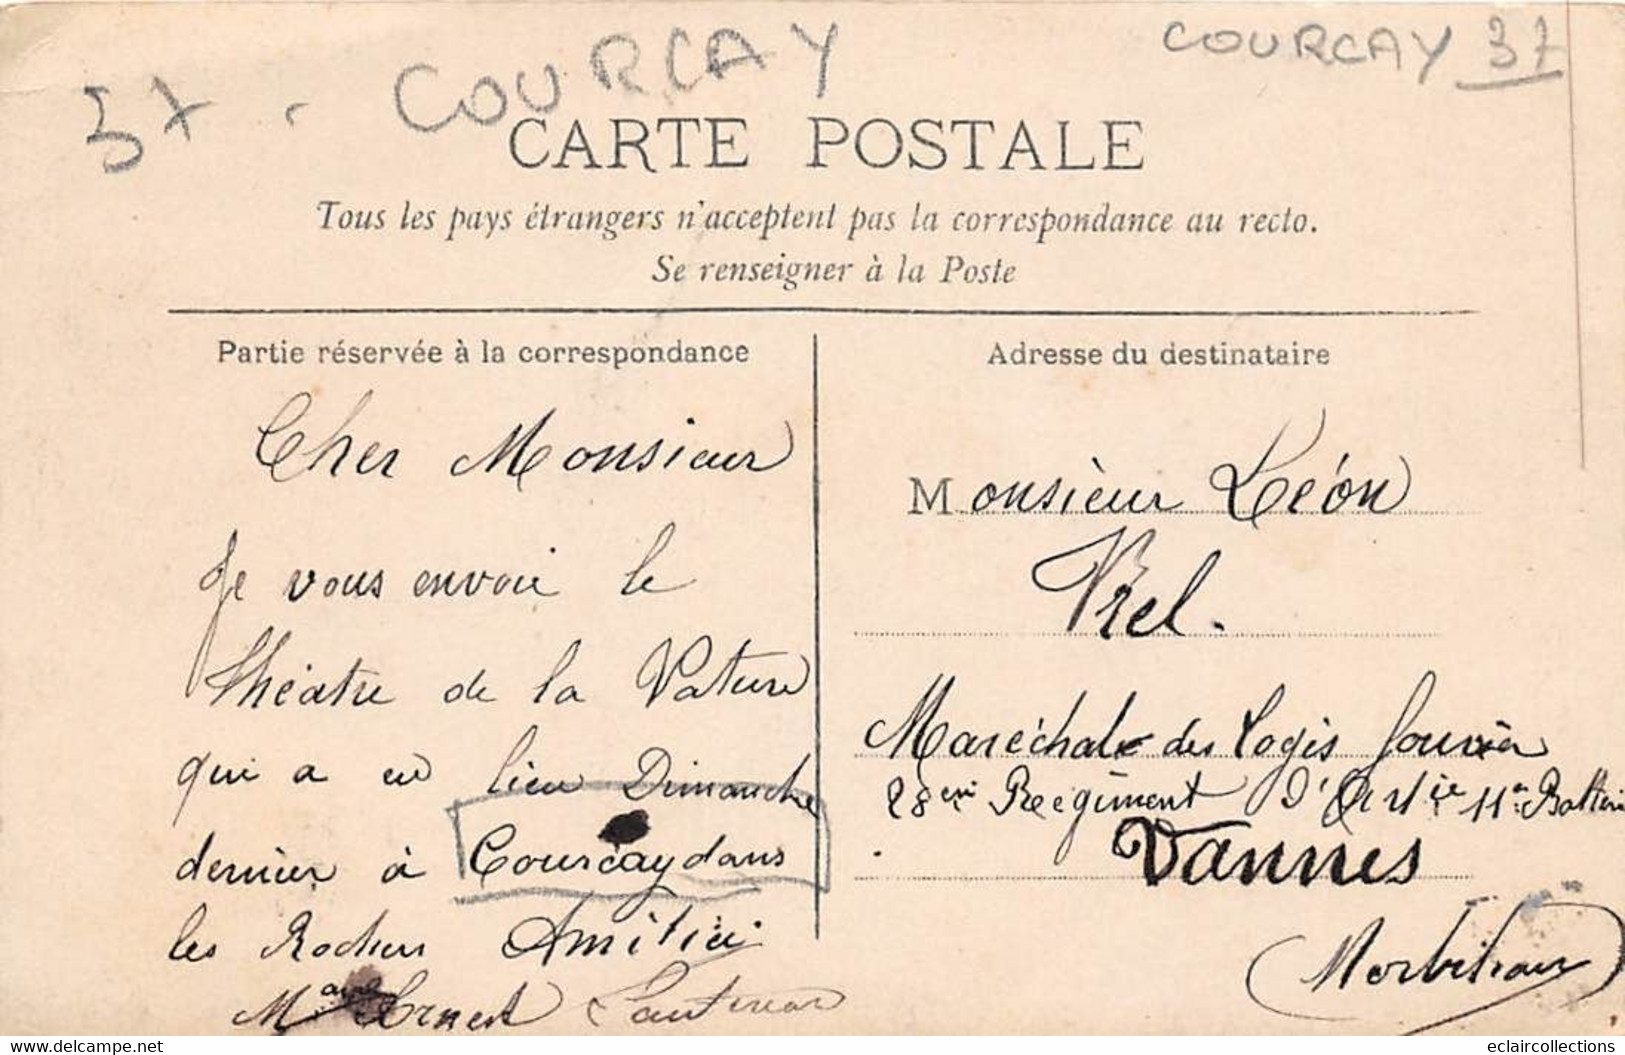 37 - COURCAY
COURCAY 37
CARTE POSTALE
Tous les pays étrangers n'acceptent pas la correspondance au recto.
Se renseigner à la Poste
Partie réservée à la correspondance
Cher Monsieur
Je vous envoie le
théatre de la Nature
qui a eu lieu Dimanche
dernier à Courcay dans
les Rochers Amitié
Ernest
Adresse du destinataire
Monsieur Léon
Vrel.
Maréchal des logis fourrier
28em Régiment D'Artie 11e Batterie
Vannes
(Morbihan)
eclaircollections
www.delcampe.net